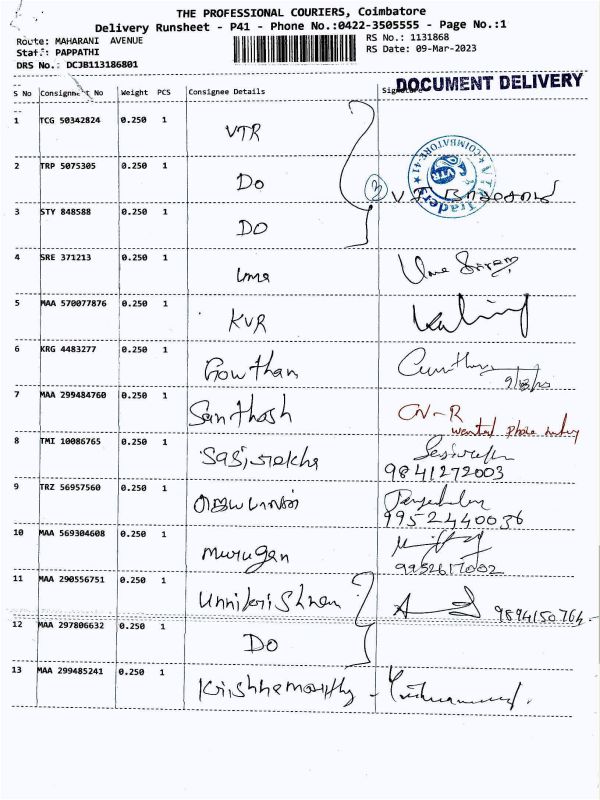 THE PROFESSIONAL COURIERS, Coimbatore
Delivery Runsheet - P41 - Phone No.:0422-3505555 - Page No.:1
Route: MAHARANI AVENUE
RS No.: 1131868
Staff: PAPPATHI
RS Date: 09-Mar-2023
DRS No.: DCJB113186801
DOCUMENT DELIVERY
S No Consignment No Weight PCS Consignee Details Signature
1 TCG 50342824 0.250 1 VTR
2 TRP 5075305 0.250 1 Do
3 STY 848588 0.250 1 DO
3
VTR Traders COIMBATORE-41
4 SRE 371213 0.250 1 Uma
5 MAA 570077876 0.250 1 KVR
6 KRG 4483277 0.250 1 Gowtham
7 MAA 299484760 0.250 1 Santhosh CN-R
wanted phone
8 TMI 10086765 0.250 1 Sasirekha
9841272003
9 TRZ 56957560 0.250 1 ஜெயபாலன்
9952440036
10 MAA 569304608 0.250 1 Murugan
9952617002
11 MAA 290556751 0.250 1 Unnikrishnan 9894150764
12 MAA 297806632 0.250 1 Do
13 MAA 299485241 0.250 1 Krishnamoorthy